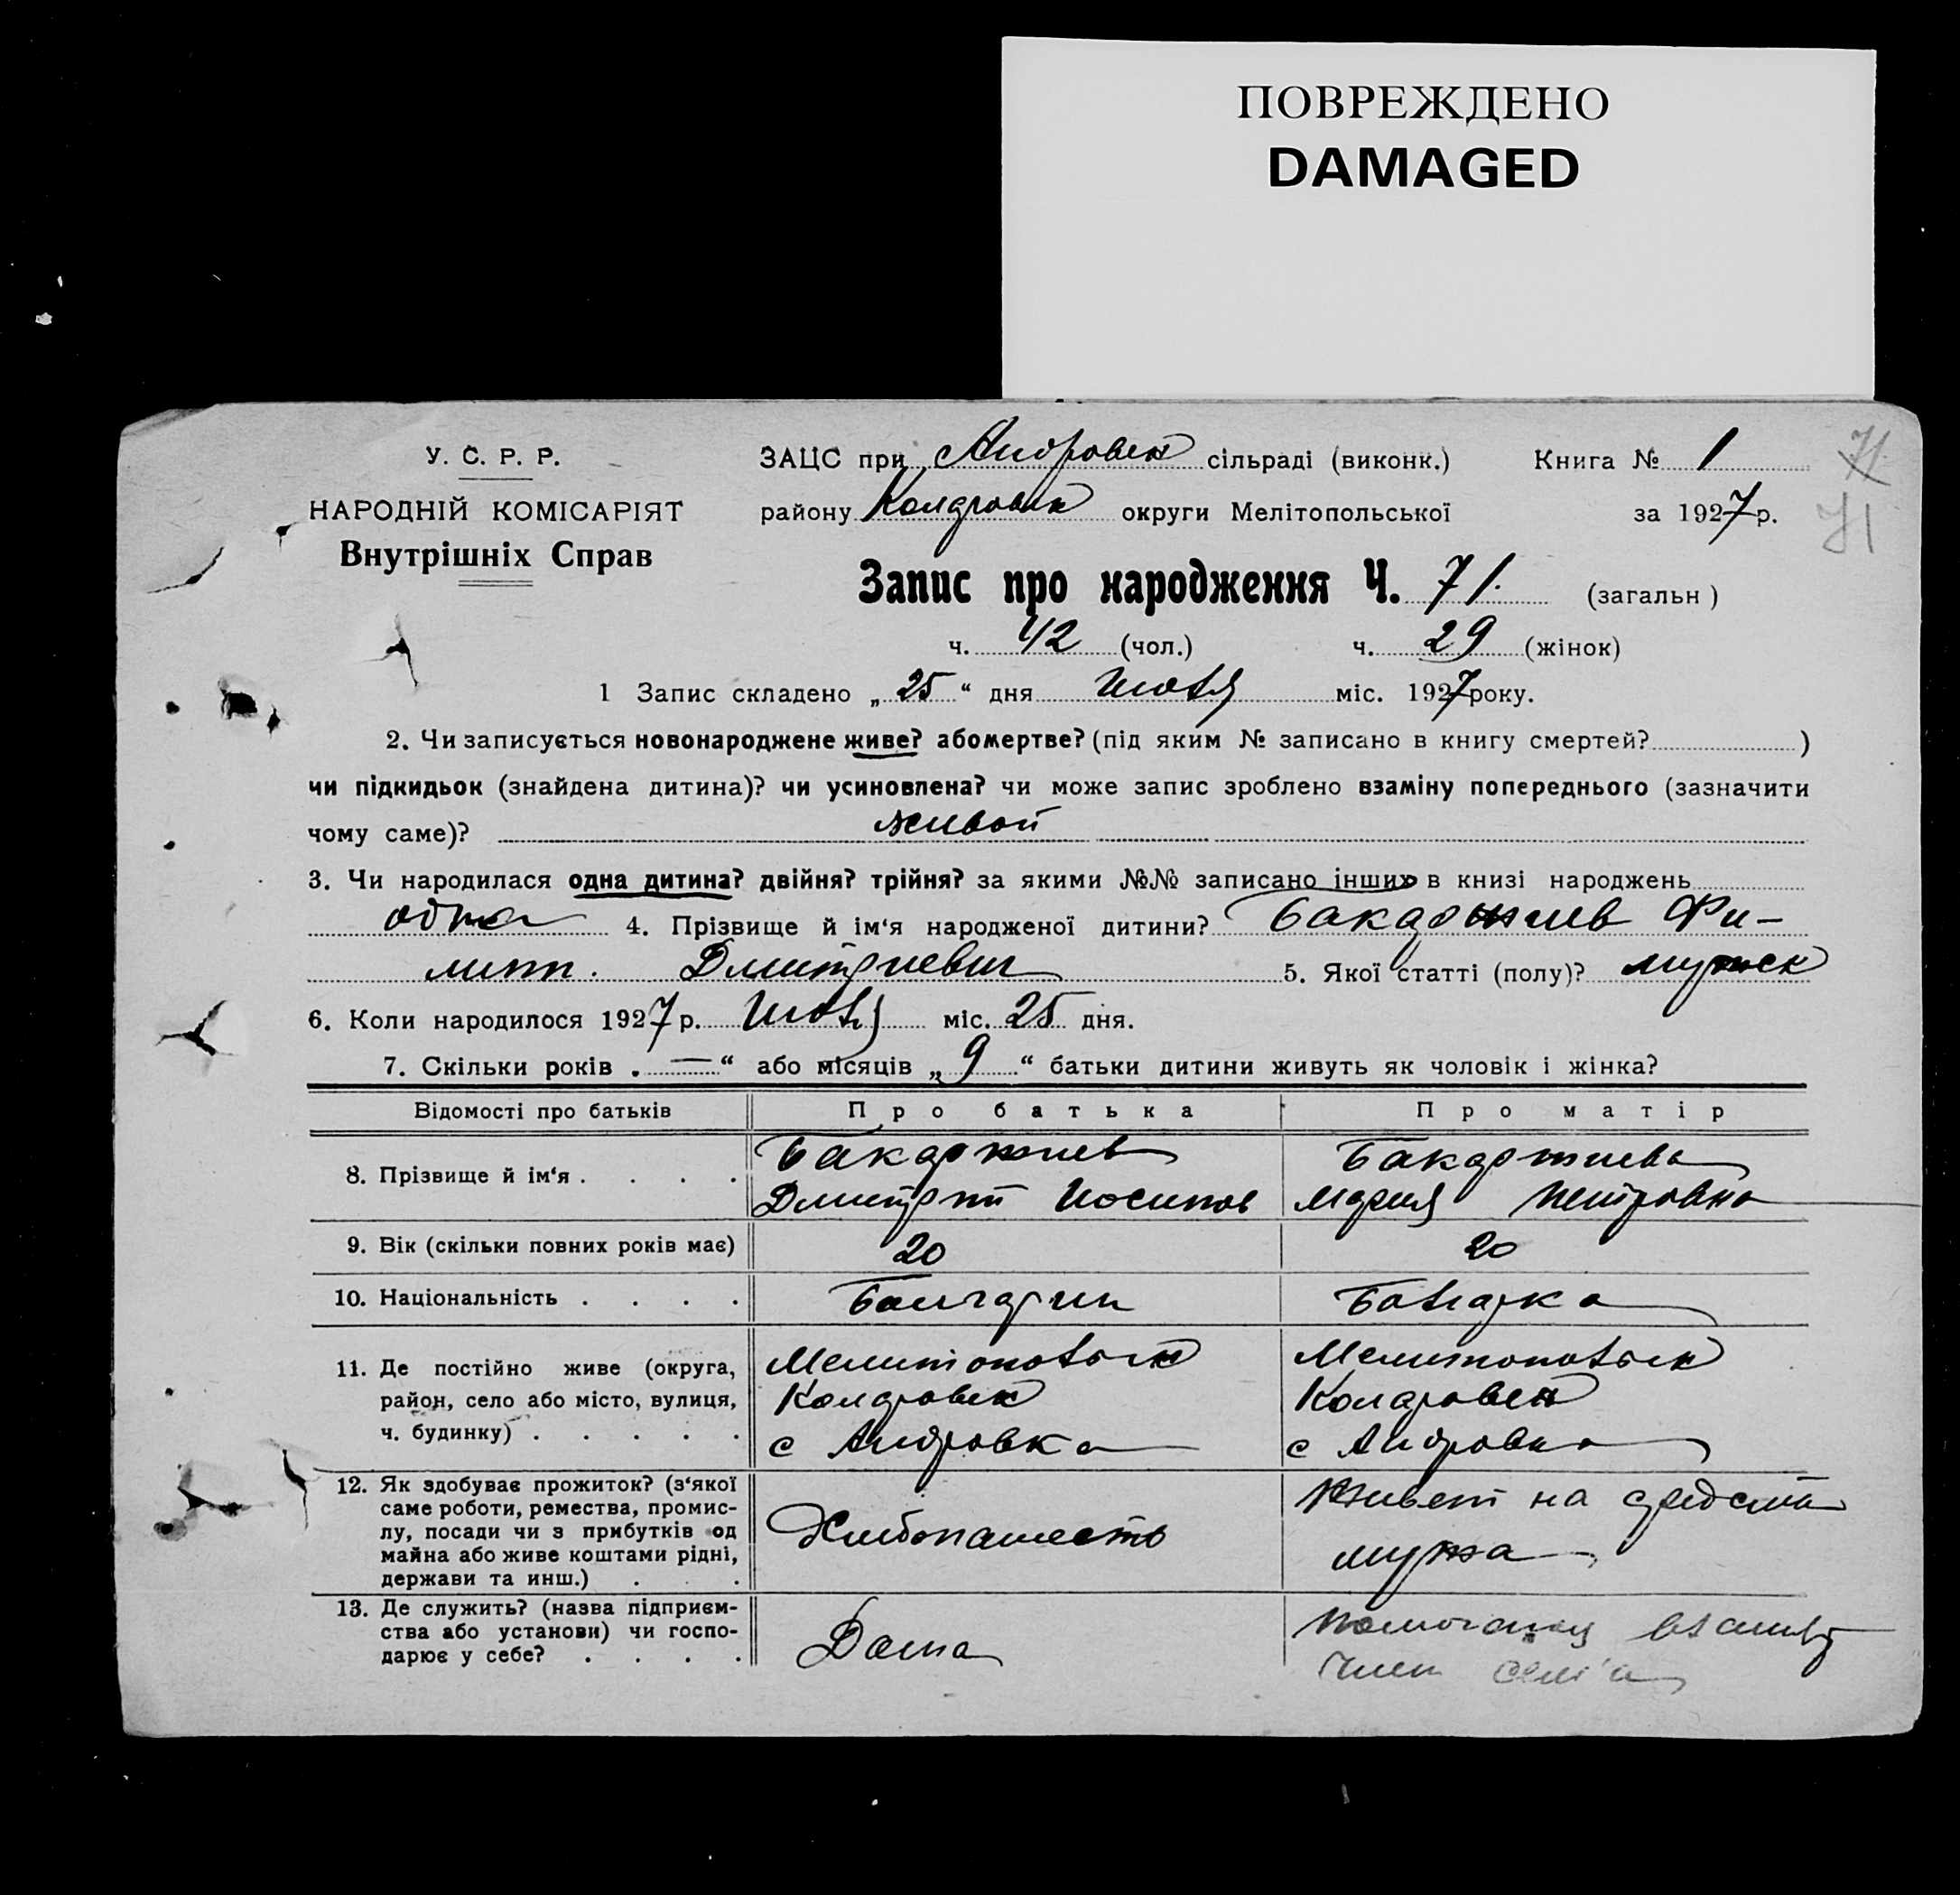 ПОВРЕЖДЕНО
DAMAGED
У. С. Р. Р.
НАРОДНІЙ КОМІСАРІЯТ
Внутрішніх Справ
ЗАЦС при Андровск сільраді (виконк.) Книга № 1
71
району Коларовск округи Мелітопольської за 1927 р.
71
Запис про народження Ч. 71. (загальн)
ч. 42 (чол.) ч. 29 (жінок)
1 Запис складено „25“ дня Июля міс. 1927 року.
2. Чи записується новонароджене живе? або мертве? (під яким № записано в книгу смертей? )
чи підкидьок (знайдена дитина)? чи усиновлена? чи може запис зроблено взаміну попереднього (зазначити
чому саме)? живой
3. Чи народилася одна дитина? двійня? трійня? за якими №№ записано інших в книзі народжень
одна 4. Прізвище й ім‘я народженої дитини? Бакарджиев Фи-
липп. Дмитриевич 5. Якої статті (полу)? мужск
6. Коли народилося 1927 р. Июля міс. 25 дня.
7. Скільки років „—“ або місяців „9“ батьки дитини живуть як чоловік і жінка?
Відомості про батьків Про батька Про матір
8. Прізвище й ім‘я . . . . Бакаржиев Бакаржиева
Дмитрий Иосипов Мария Петровна
9. Вік (скільки повних років має) 20 20
10. Національність . . . . Болгарин Болгарка
11. Де постійно живе (округа, Мелитопольск Мелитопольск
район, село або місто, вулиця, Коларовск Коларовск
ч. будинку) . . . . . с Андровка с Андровка
12. Як здобуває прожиток? (з‘якої
саме роботи, ремества, промис-
лу, посади чи з прибутків од
майна або живе коштами рідні,
держави та инш.) . . .
Хлебопашество
Живет на средства
мужа
13. Де служить? (назва підприєм-
ства або установи) чи госпо-
дарює у себе? . . . .
Дома
член сем'и